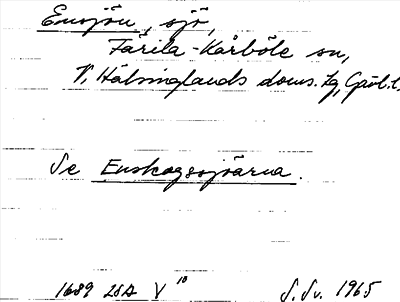 Ensjön, sjö,
Färila-Kårböle sn,
V. Hälsinglands doms. tg, Gävl. l.
Se Enskogssjöarna.
1689 26A V 10 S. Sv. 1965